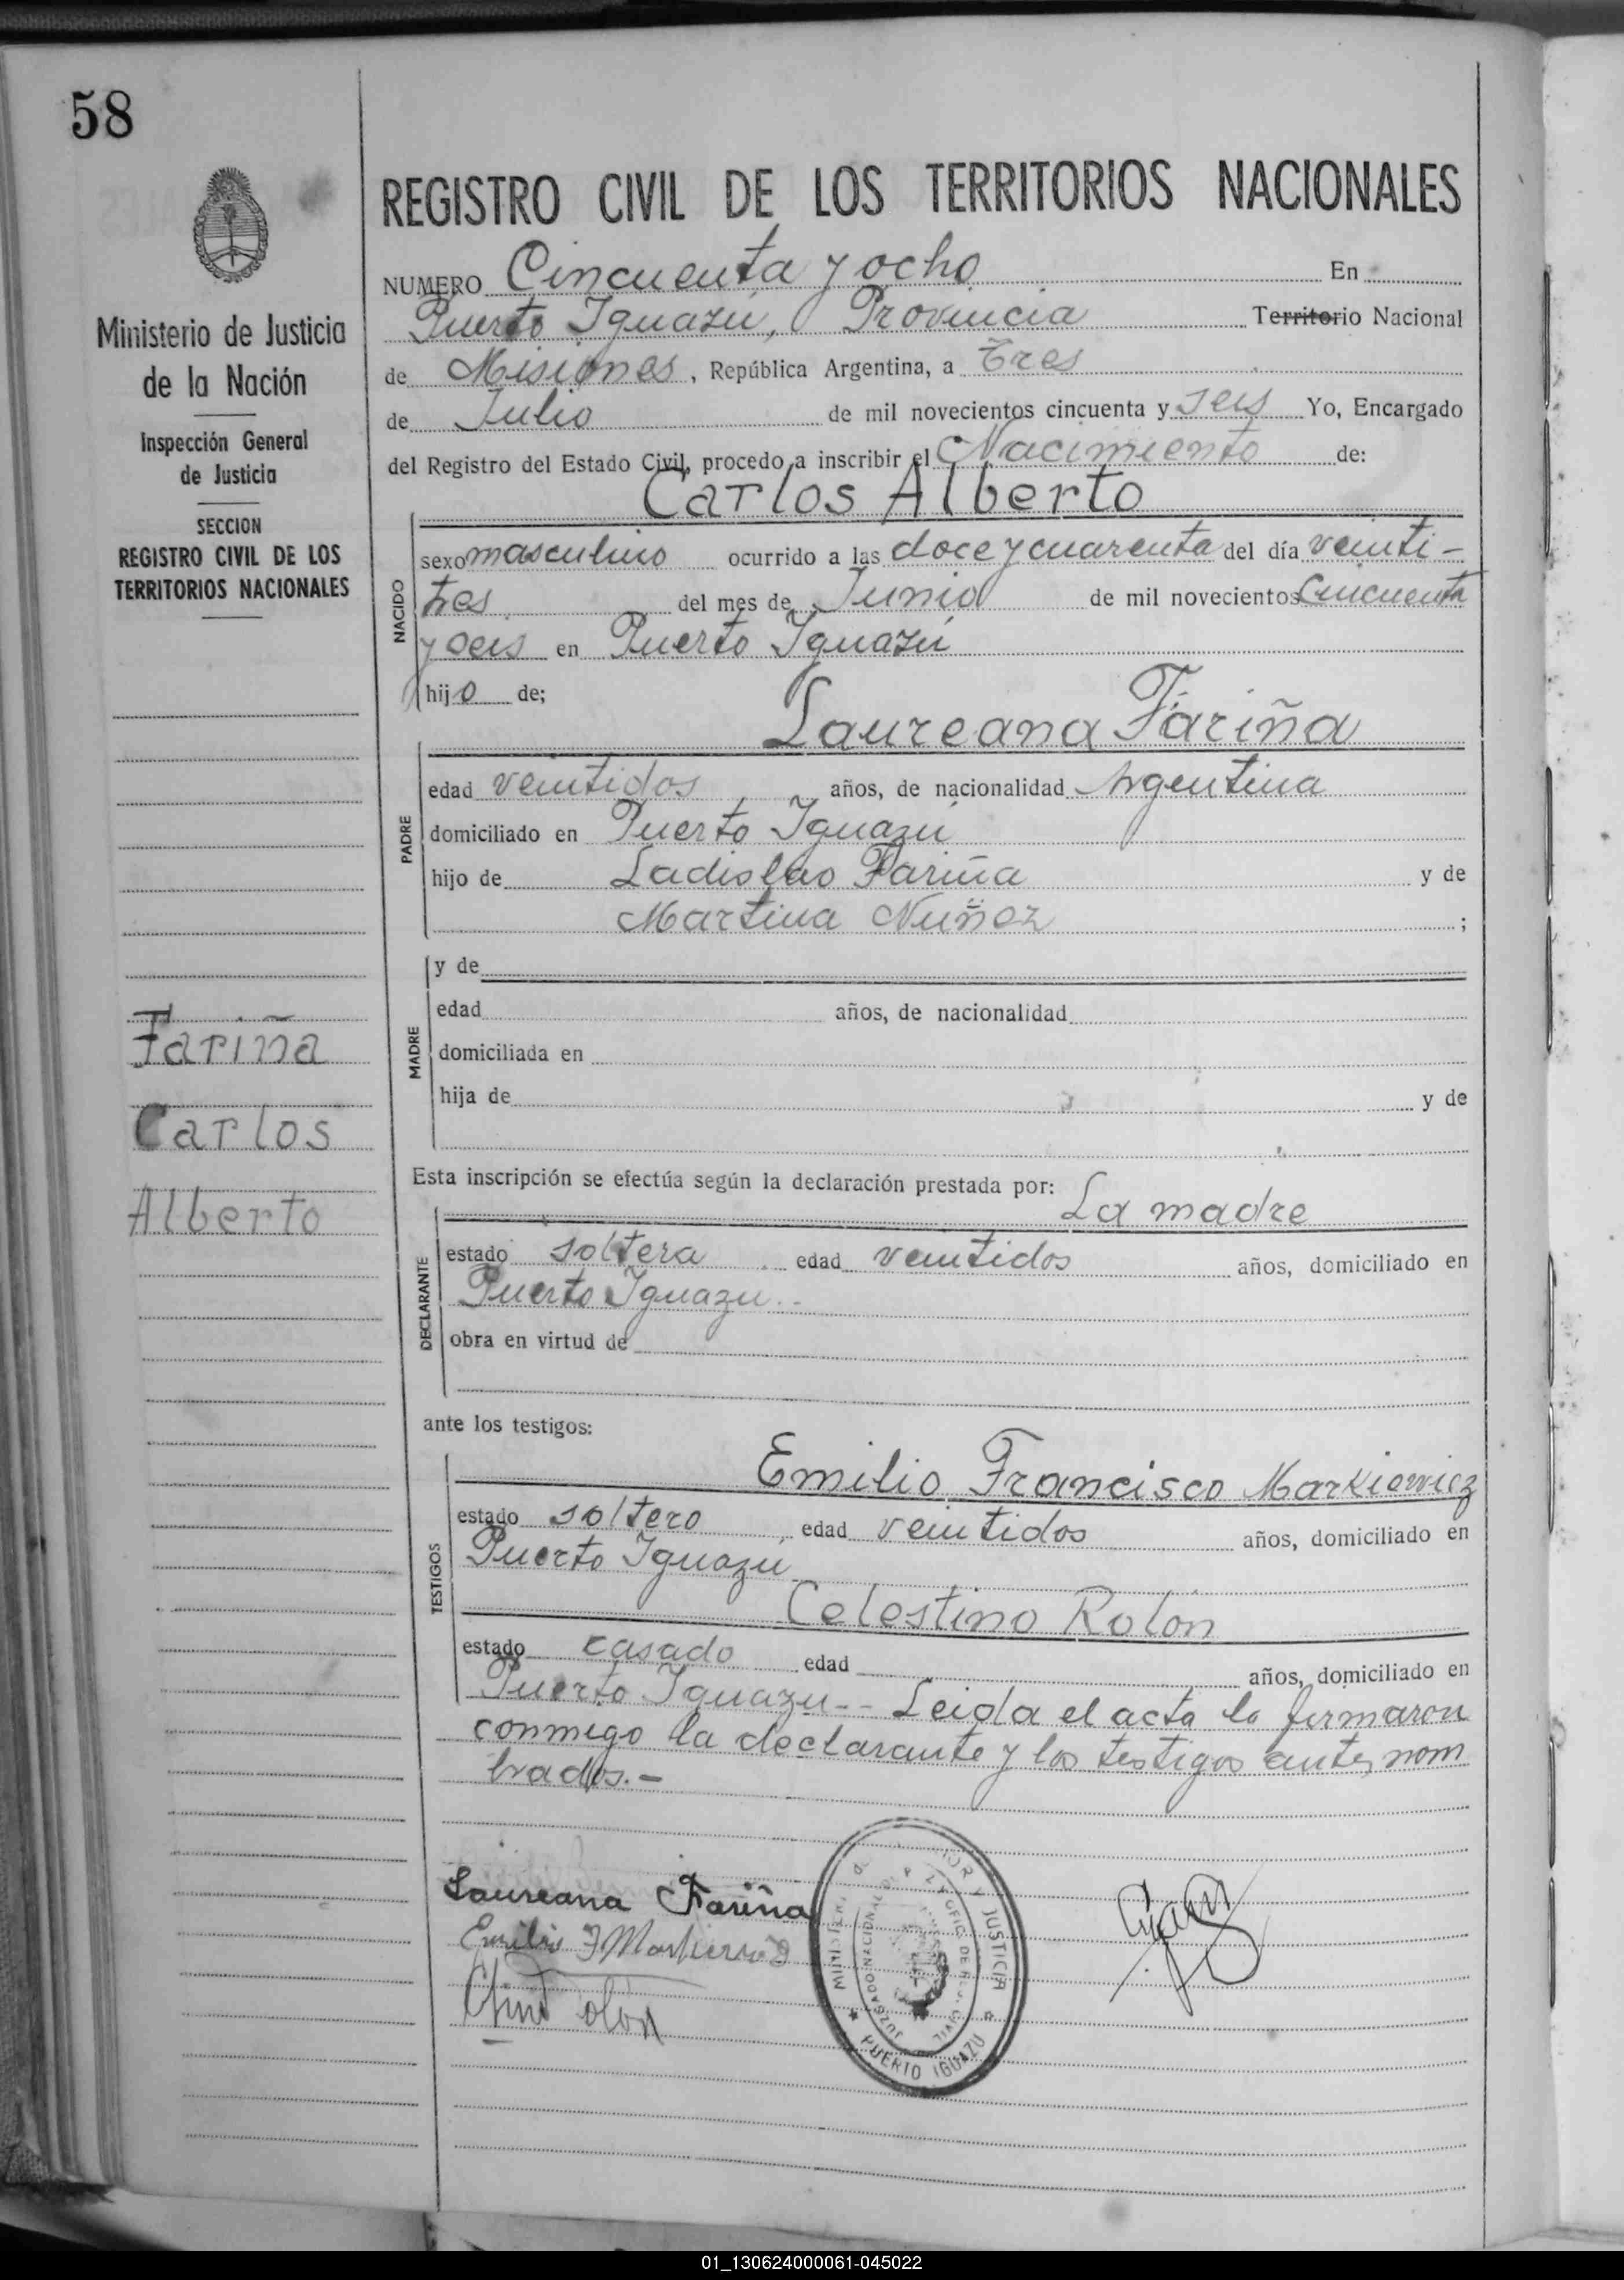 58
Ministerio de Justicia
de la Nación
Inspección General
de Justicia
SECCION
REGISTRO CIVIL DE LOS
TERRITORIOS NACIONALES
Fariña
Carlos
Alberto
REGISTRO CIVIL DE LOS TERRITORIOS NACIONALES
NUMERO Cincuenta y ocho En
Puerto Iguazú, Provincia Territorio Nacional
de Misiones, República Argentina, a Tres
de Julio de mil novecientos cincuenta y seis Yo, Encargado
del Registro del Estado Civil, procedo a inscribir el Nacimiento de:
Carlos Alberto
NACIDO
sexo masculino ocurrido a las doce y cuarenta del día veinti-
tres del mes de Junio de mil novecientos cincuenta
y seis en Puerto Iguazú
hijo de;
Laureana Fariña
PADRE
edad veintidos años, de nacionalidad Argentina
domiciliado en Puerto Iguazú
hijo de Ladislao Fariña y de
Martina Nuñez ;
y de
MADRE
edad años, de nacionalidad
domiciliada en
hija de y de
Esta inscripción se efectúa según la declaración prestada por:
La madre
DECLARANTE
estado soltera edad veintidos años, domiciliado en
Puerto Iguazu.-
obra en virtud de
ante los testigos:
Emilio Francisco Markiewicz
TESTIGOS
estado soltero edad veintidos años, domiciliado en
Puerto Iguazú
Celestino Rolón
estado casado edad años, domiciliado en
Puerto Iguazu.-- Leida el acta la firmaron
conmigo la declarante y los testigos antes nom
brados.-
Laureana Fariña
Emilio F Markiewicz
JUSTICIA
PUERTO IGUAZU
01_130624000061-045022